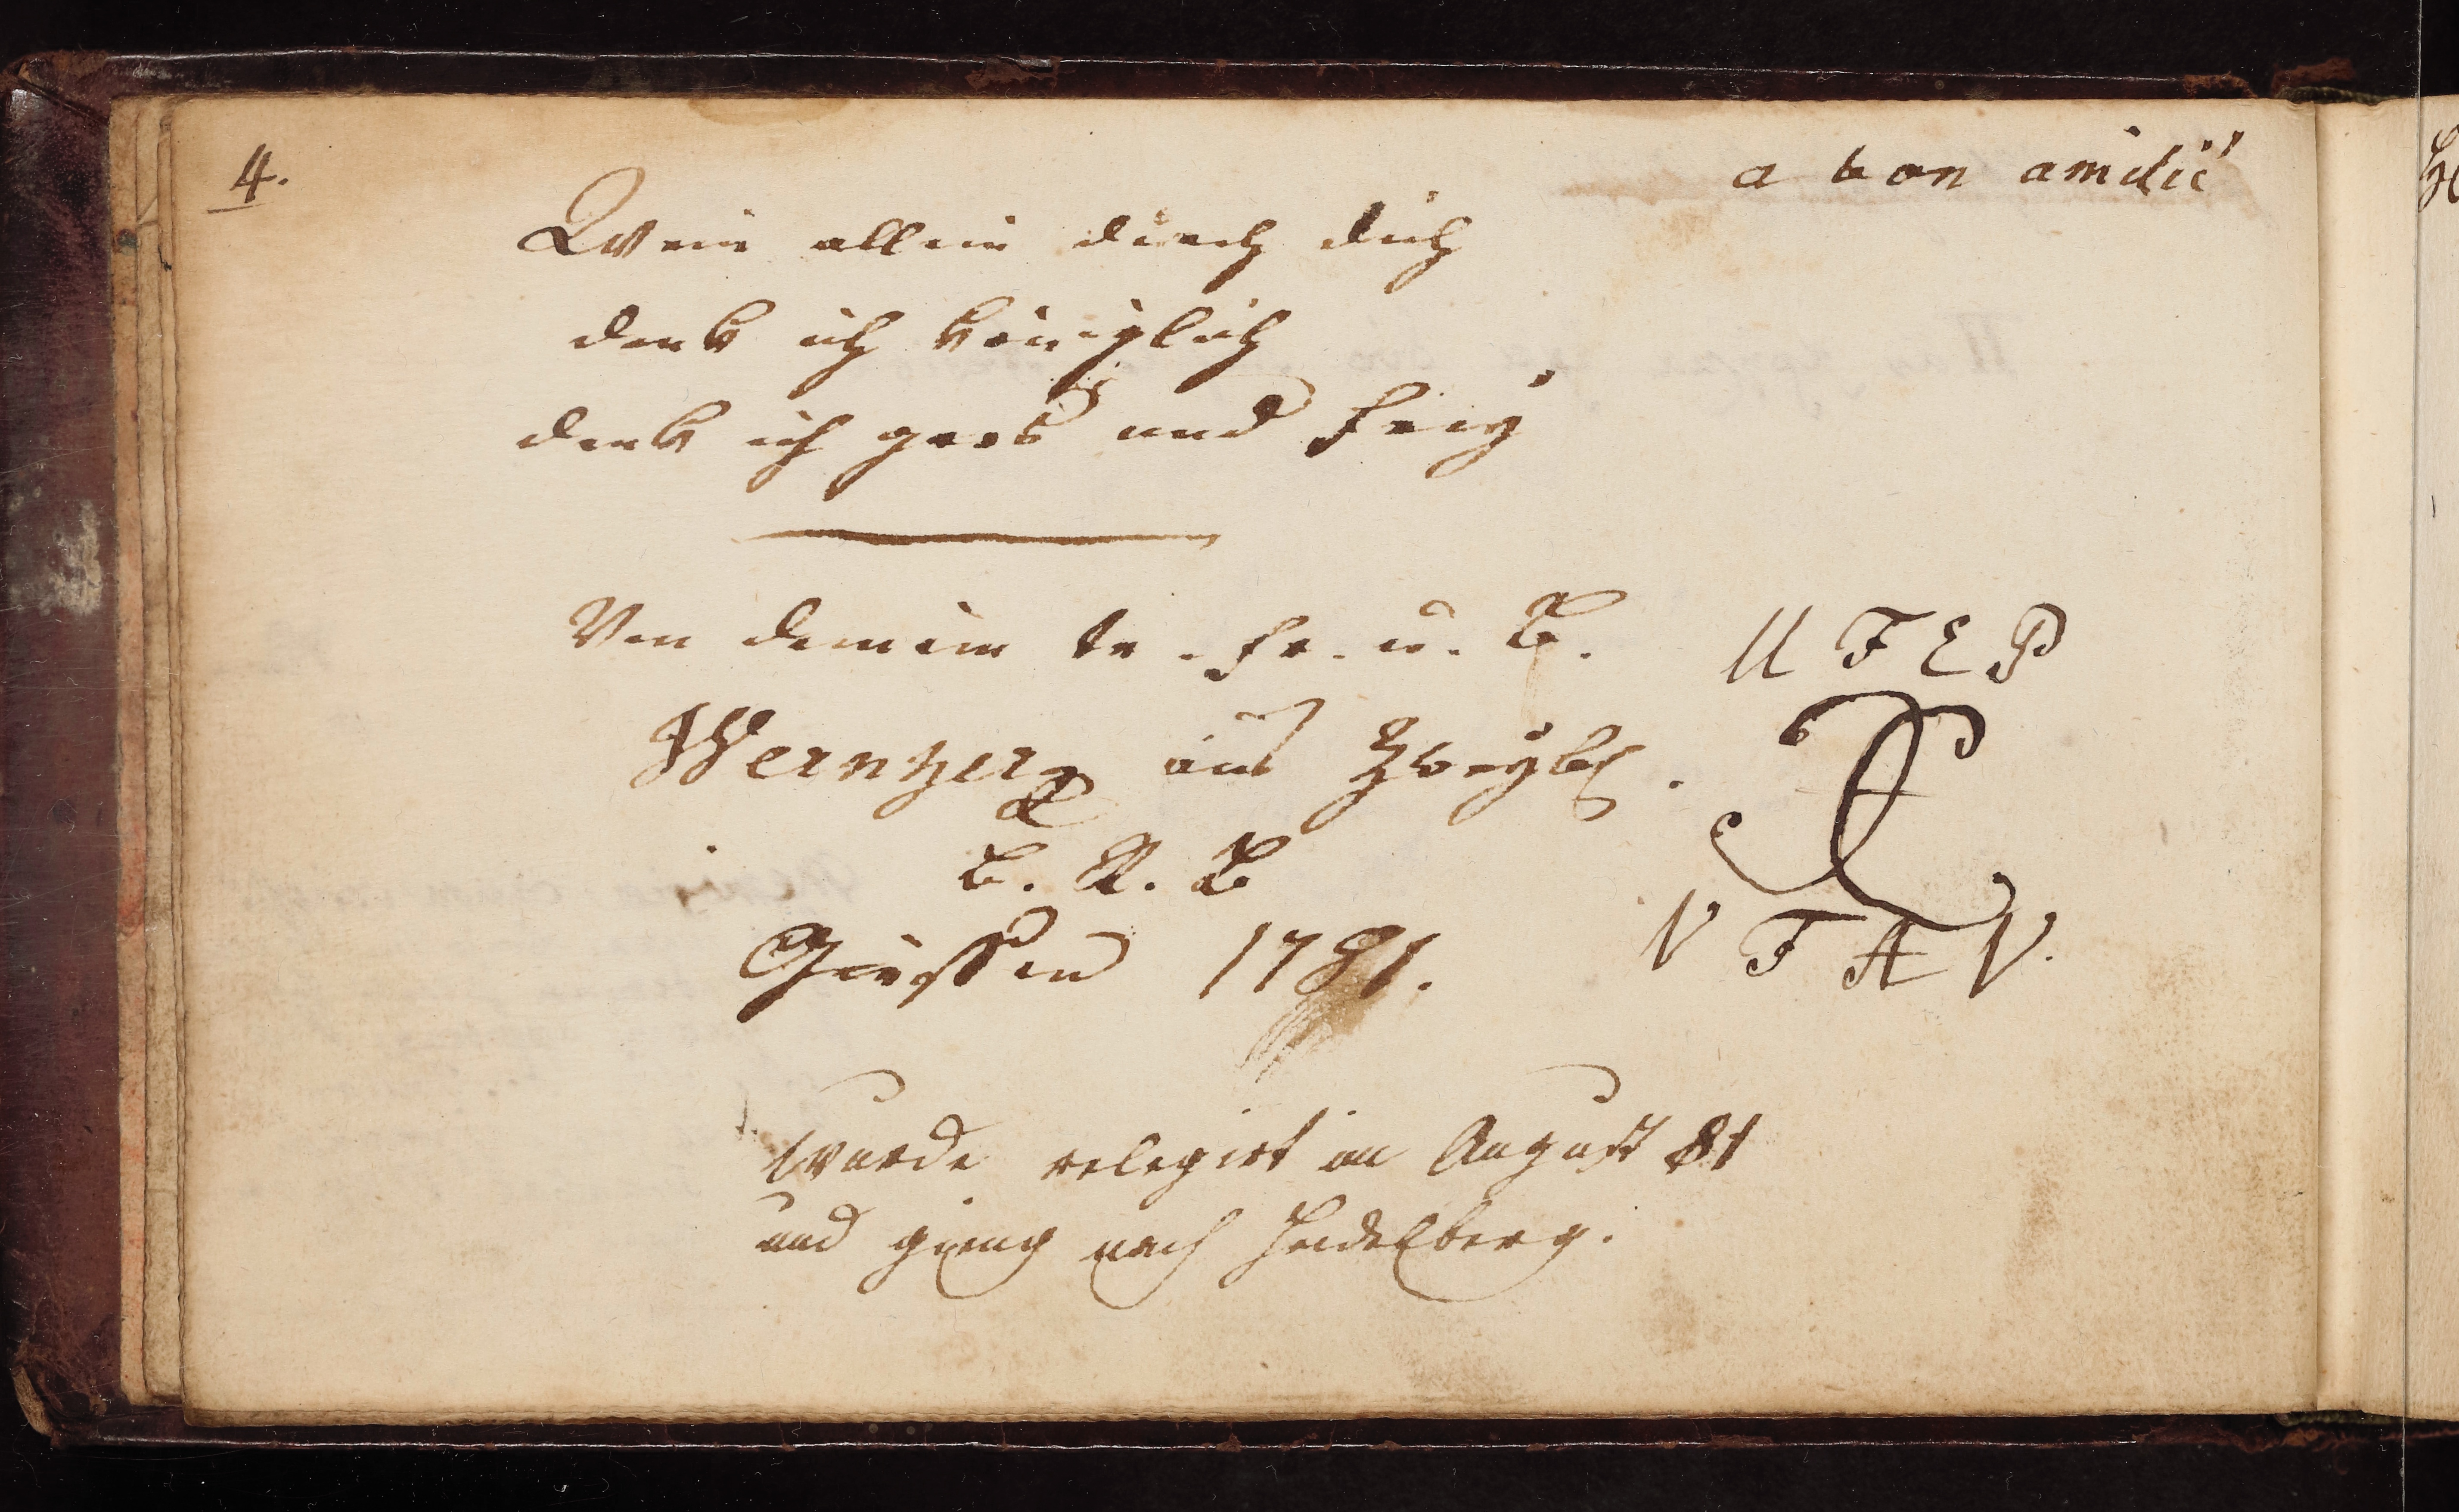 4.
a bon amitié
Wein allein durch dich
denk ich königlich
denk ich gros und frey
Von deinem tr. Fr. u. B.
U F E P
Wernher aus Zweybr.
C. R. B
V F A V.
Giessen 1781.
wurde relegirt im August 81
und gieng nach Heidelberg.